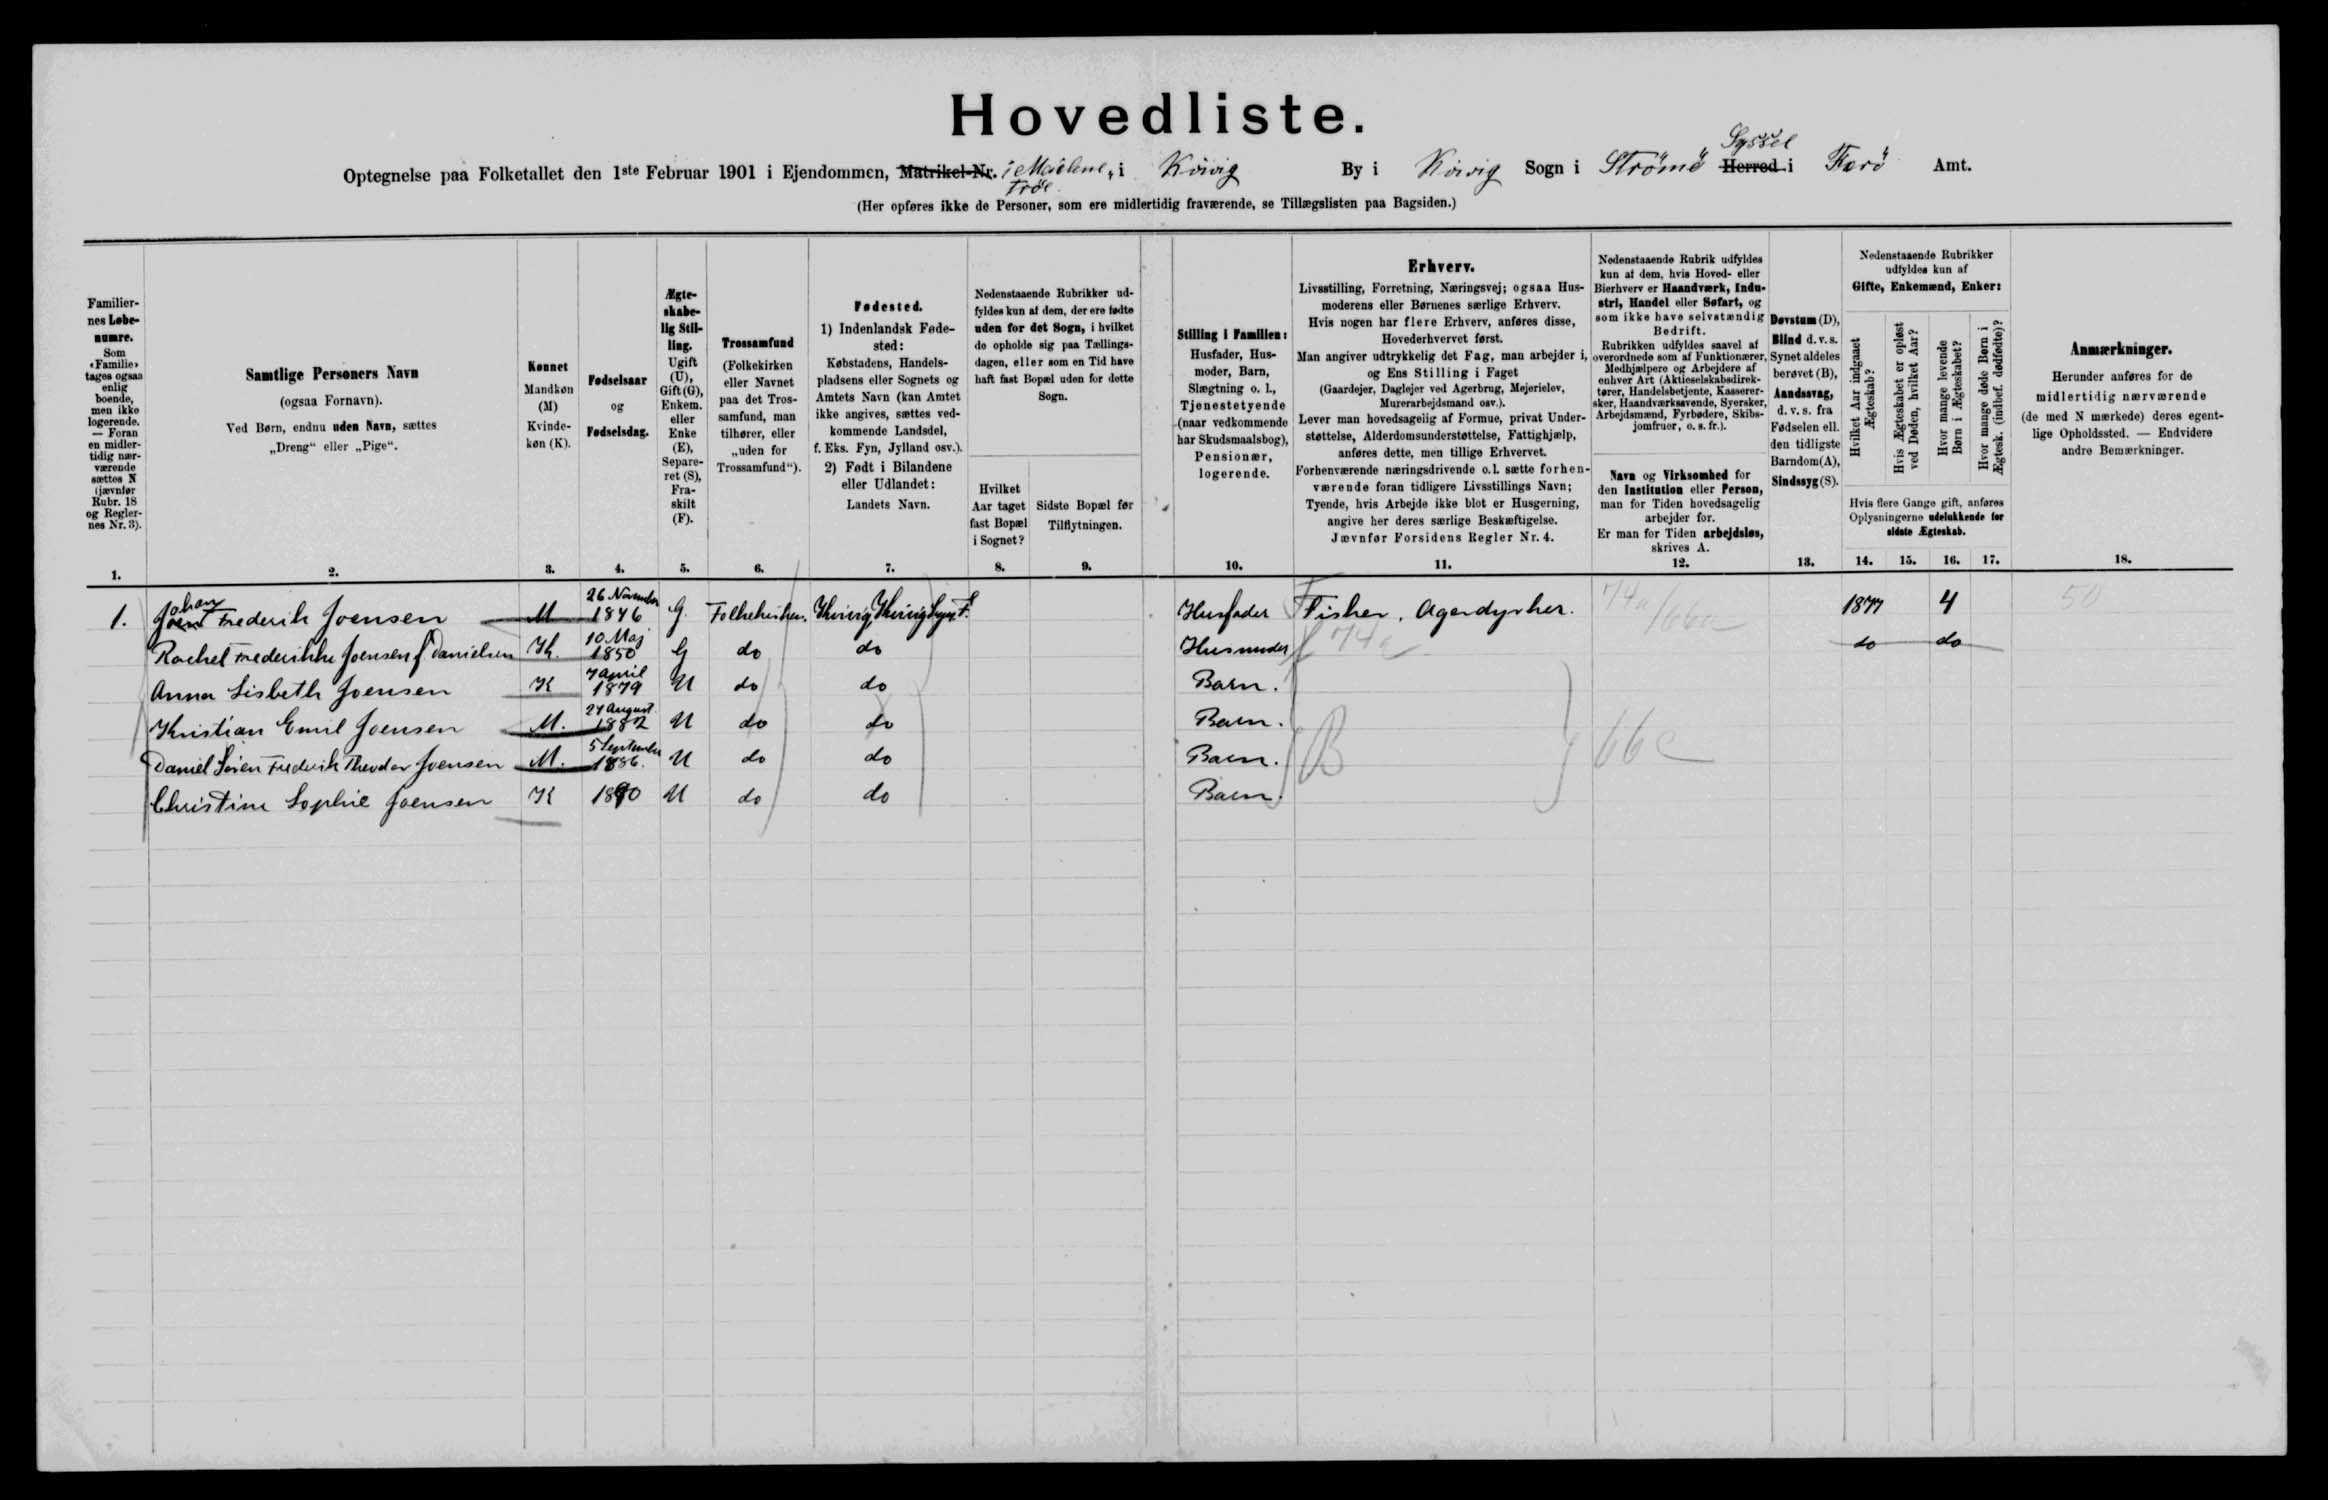 Hovedliste.
Syssel
Optegnelse paa Folketallet den 1ste Februar 1901 i Ejendommen, Matrikel-Nr. i i Kvivig By i Kvivig Sogn i Strömö Herred i Færö Amt.
Tröe
(Her opføres ikke de Personer, som ere midlertidig fraværende, se Tillægslisten paa Bagsiden.)
Familiernes Løbenumre.
Som «Familie» tages ogsaa enlig boende, men ikke logerende. — Foran en midlertidig nærværende sættes N (jævnfør Rubr. 18 og Reglernes Nr. 3).
Samtlige Personers Navn
(ogsaa Fornavn).
Ved Børn, endnu uden Navn, sættes
„Dreng“ eller „Pige“.
Kønnet
Mandkøn (M)
Kvindekøn (K).
Fødselsaar
og
Fødselsdag.
Ægteskabelig Stilling.
Ugift (U), Gift (G), Enkem. eller Enke (E), Separeret (S), Fraskilt (F).
Trossamfund
(Folkekirken eller Navnet paa det Trossamfund, man tilhører, eller „uden for Trossamfund“).
Fødested.
1) Indenlandsk Fødested:
Købstadens, Handelspladsens eller Sognets og Amtets Navn (kan Amtet ikke angives, sættes vedkommende Landsdel, f. Eks. Fyn, Jylland osv.).
2) Født i Bilandene eller Udlandet:
Landets Navn.
Nedenstaaende Rubrikker udfyldes kun af dem, der ere fødte uden for det Sogn, i hvilket de opholde sig paa Tællingsdagen, eller som en Tid have haft fast Bopæl uden for dette Sogn.
Hvilket Aar taget fast Bopæl i Sognet?
Sidste Bopæl før Tilflytningen.
Stilling i Familien:
Husfader, Husmoder, Barn, Slægtning o. l., Tjenestetyende (naar vedkommende har Skudsmaalsbog), Pensionær, logerende.
Erhverv.
Livsstilling, Forretning, Næringsvej; ogsaa Husmoderens eller Børnenes særlige Erhverv.
Hvis nogen har flere Erhverv, anføres disse, Hovederhvervet først.
Man angiver udtrykkelig det Fag, man arbejder i, og Ens Stilling i Faget
(Gaardejer, Daglejer ved Agerbrug, Mejerielev, Murerarbejdsmand osv.).
Lever man hovedsagelig af Formue, privat Understøttelse, Alderdomsunderstøttelse, Fattighjælp, anføres dette, men tillige Erhvervet.
Forhenværende næringsdrivende o.l. sætte forhenværende foran tidligere Livsstillings Navn;
Tyende, hvis Arbejde ikke blot er Husgerning, angive her deres særlige Beskæftigelse.
Jævnfør Forsidens Regler Nr. 4.
Nedenstaaende Rubrik udfyldes kun af dem, hvis Hoved- eller Bierhverv er Haandværk, Industri, Handel eller Søfart, og som ikke have selvstændig Bedrift.
Rubrikken udfyldes saavel af overordnede som af Funktionærer, Medhjælpere og Arbejdere af enhver Art (Aktieselskabsdirektører, Handelsbetjente, Kasserersker, Haandværkssvende, Syersker, Arbejdsmænd, Fyrbødere, Skibsjomfruer, o. s. fr.).
Navn og Virksomhed for den Institution eller Person, man for Tiden hovedsagelig arbejder for.
Er man for Tiden arbejdsløs, skrives A.
Døvstum (D), Blind d. v. s. Synet aldeles berøvet (B), Aandssvag, d. v. s. fra Fødselen ell. den tidligste Barndom (A), Sindssyg (S).
Nedenstaaende Rubrikker udfyldes kun af
Gifte, Enkemænd, Enker:
Hvilket Aar indgaaet Ægteskab?
Hvis Ægteskabet er opløst ved Døden, hvilket Aar?
Hvor mange levende Børn i Ægteskabet?
Hvor mange døde Børn i Ægtesk. (indbef. dødfødte)?
Hvis flere Gange gift, anføres Oplysningerne udelukkende for sidste Ægteskab.
Anmærkninger.
Herunder anføres for de midlertidig nærværende (de med N mærkede) deres egentlige Opholdssted. — Endvidere andre Bemærkninger.
1. 2. 3. 4. 5. 6. 7. 8. 9. 10. 11. 12. 13. 14. 15. 16. 17. 18.
1. Johan Frederik Joensen M 26 November 1846 G. Folkekirken. Kvivig, Kvivig Sogn, F. Husfader Fisker, Agerdyrker. 74a/66a 1877 4 50
Rachel Frederikke Joensen f. Danielsen K. 10 Maj 1850 G do do Husmoder 74a do do
Anna Lisbeth Joensen K 7 April 1879 U do do Barn.
Kristian Emil Joensen M. 24 August 1882 U do do Barn.
Daniel Sören Frederik Theodor Joensen M. 5 September 1886. U do do Barn. B 66c
Christine Sophie Joensen K 1890 U do do Barn.